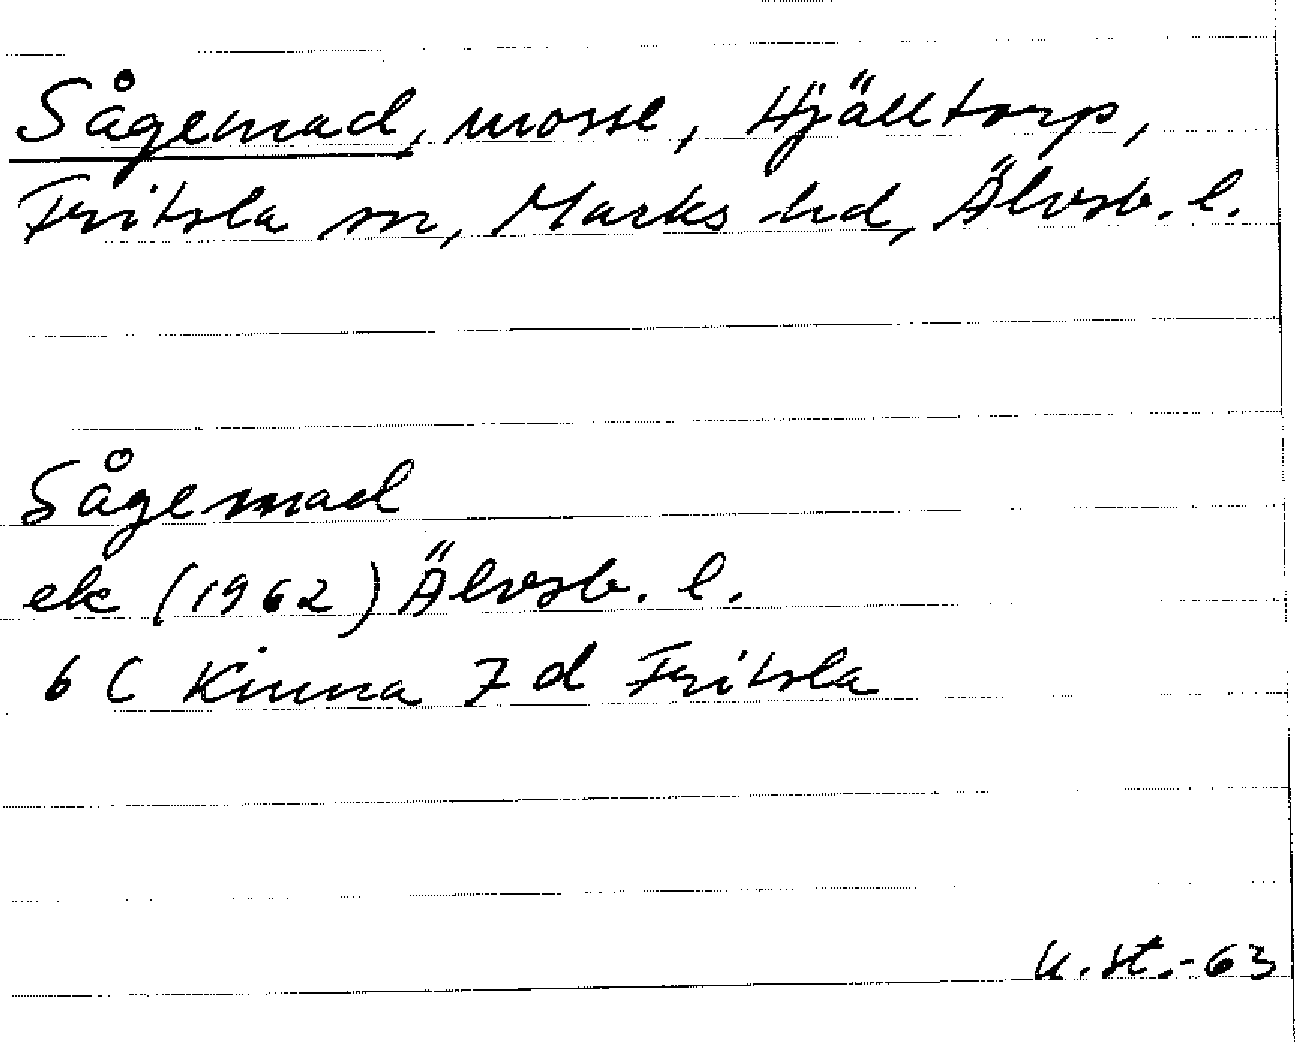 Sågemad, mosse, Hjälltorp,
Fritsla sn, Marks hd, Älvsb. l.
Sågemad
ek (1962) Älvsb. l.
6 C Kinna 7 d Fritsla
U. St.-63